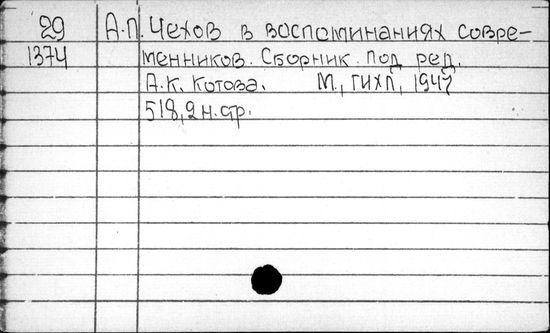 29 А.П. Чехов в воспоминаниях совре-
1374 менников. Сборник. Под ред.
А.К. Котова. М., ГИХЛ, 1947
518, 2 н. стр.